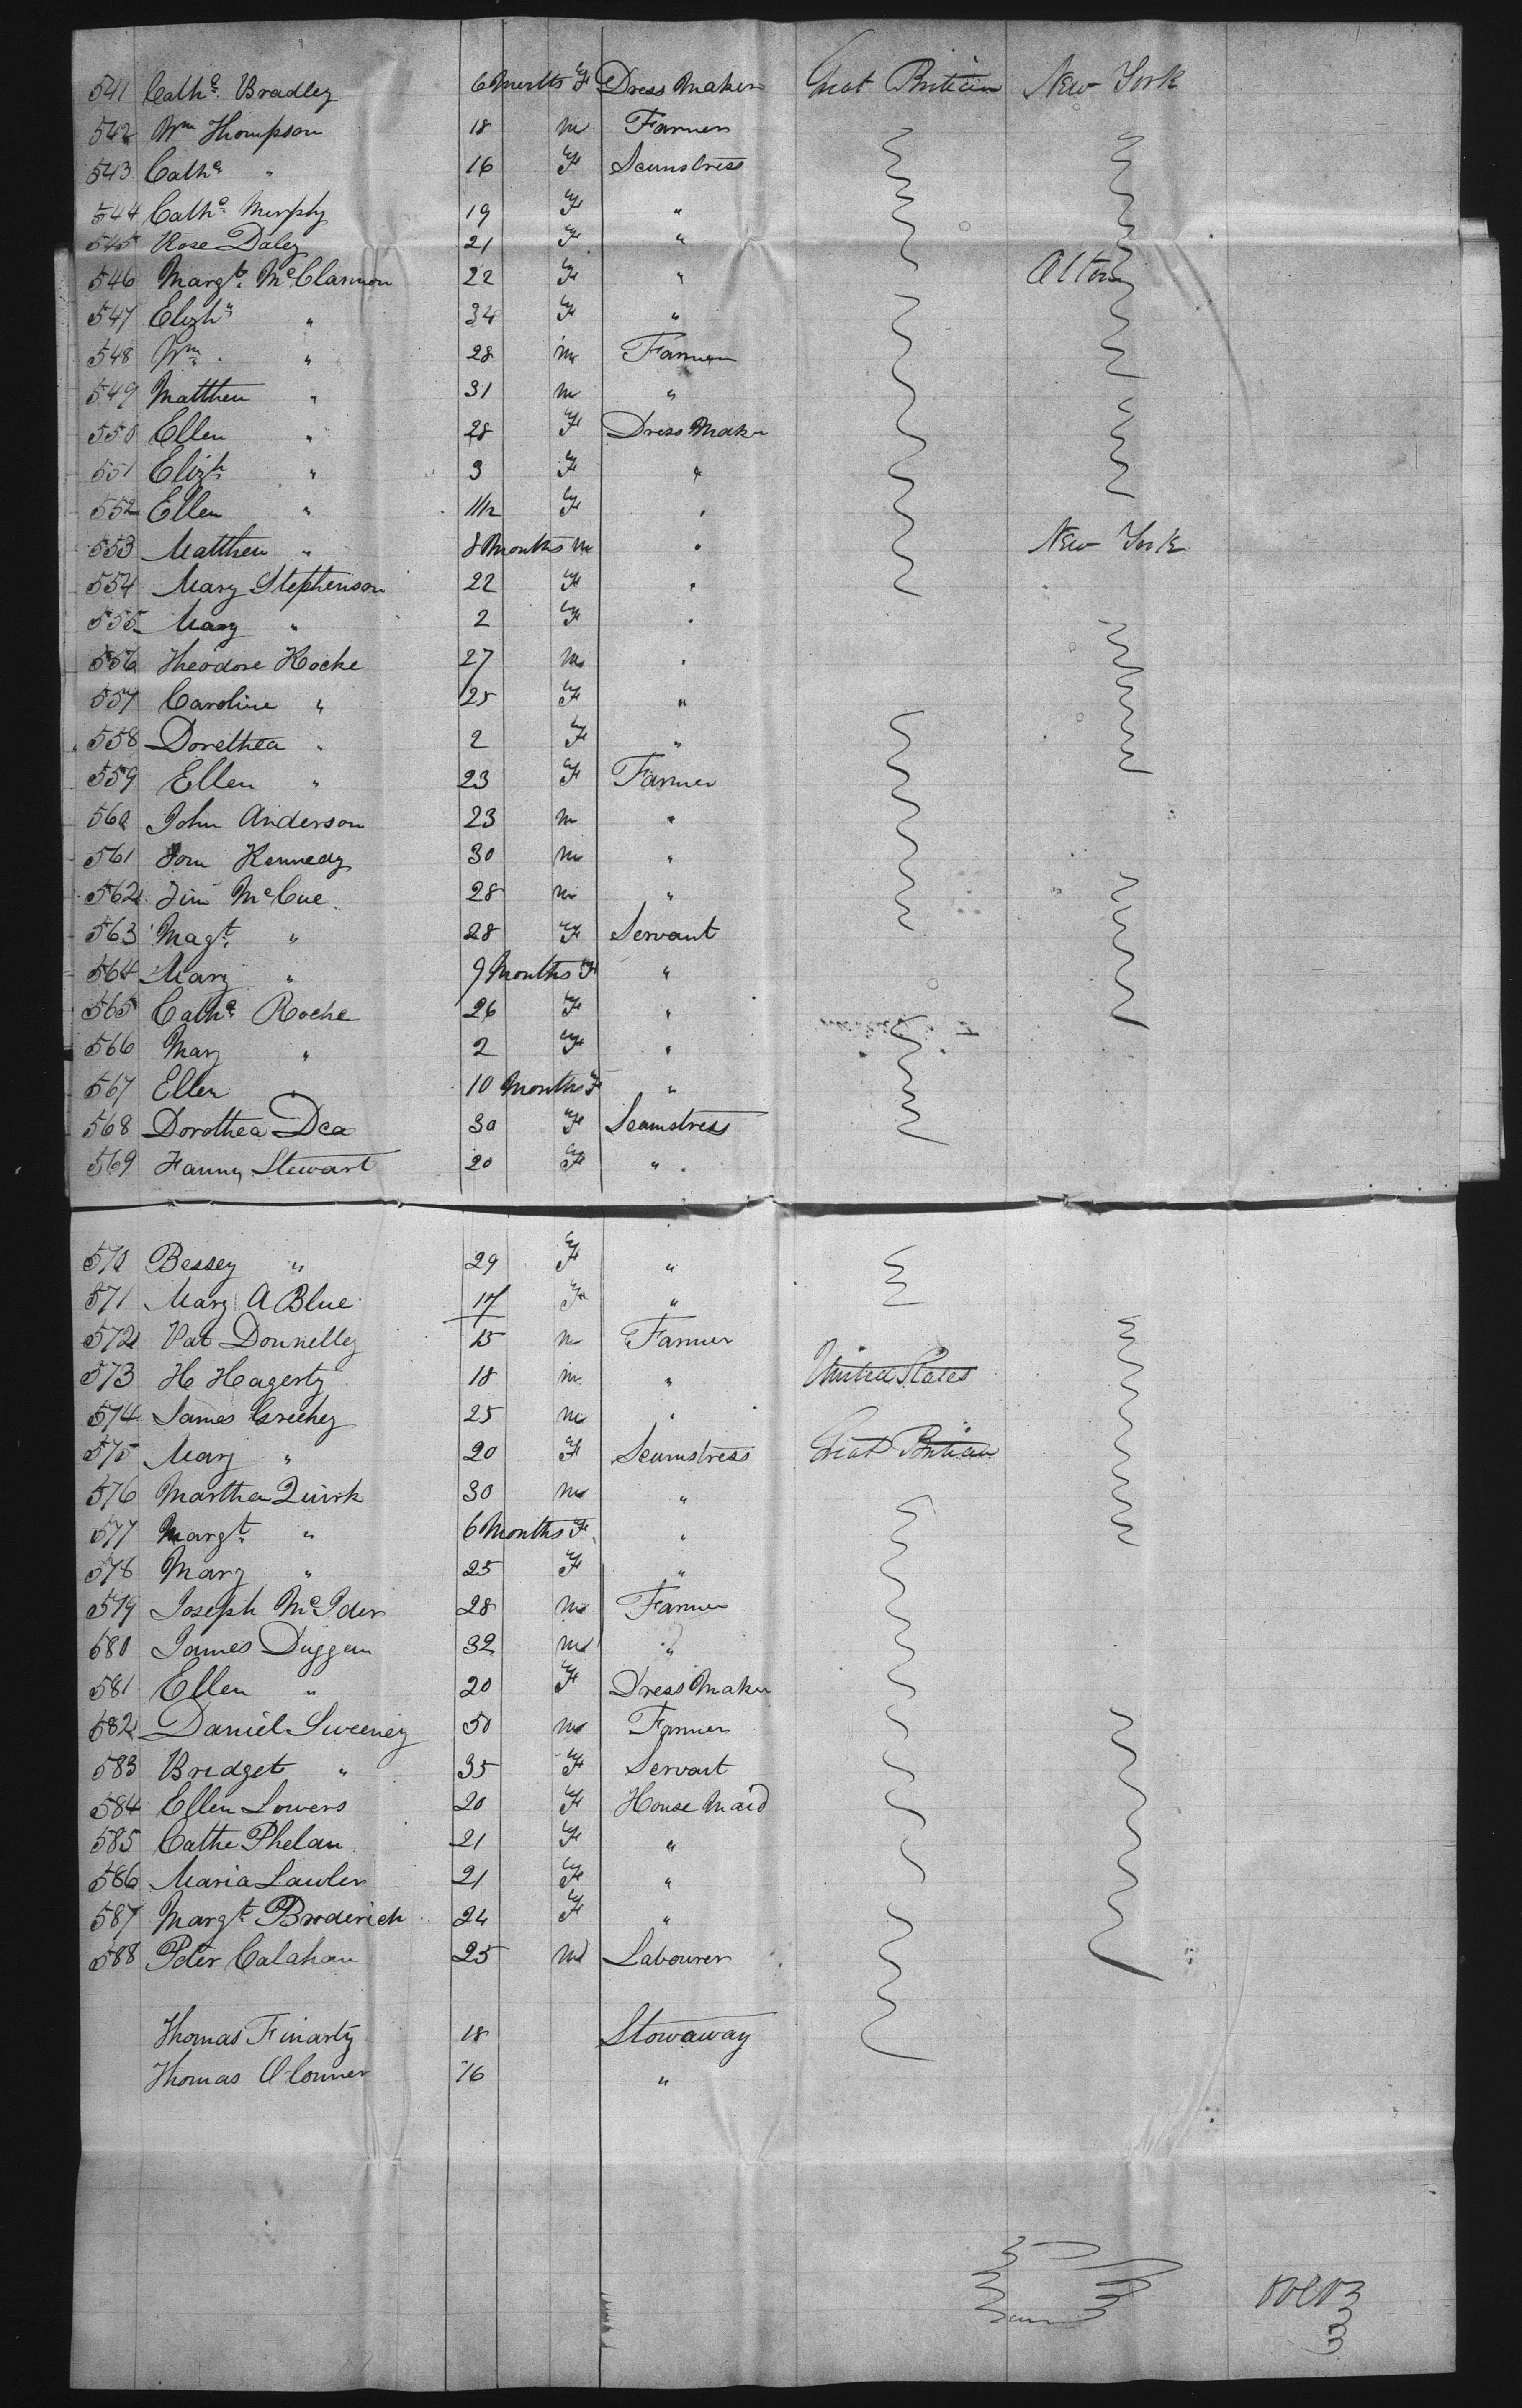 541 Cathe. Bradley 6 Months F Dress Maker Great Britian New York
542 Wm Thompson 18 m Farmer
543 Cathe. " 16 F Seamstress
544 Cathe. Murphy 19 F "
545 Rose Daley 21 F "
546 Margt. McClannon 22 F " Alton
547 Elizh " 34 F "
548 Wm. " 28 m Farmer
549 Matthew " 31 m "
550 Ellen " 28 F Dress Maker
551 Elizh " 3 F "
552 Ellen " 11/12 F "
553 Matthew " 8 Months m " New York
554 Mary Stephenson 22 F "
555 Mary " 2 F "
556 Theodore Hocke 27 m "
557 Caroline " 25 F "
558 Dorethea " 2 F "
559 Ellen " 23 F Farmer
560 John Anderson 23 m "
561 Tom Kennedy 30 m "
562 Jim McCue 28 m "
563 Magt. " 28 F Servant
564 Mary " 9 Months F "
565 Cathe. Roche 26 F "
566 Mary " 2 F "
567 Ellen " 10 Months F "
568 Dorothea Dea 30 F Seamstress
569 Fanny Stewart 20 F "
570 Bessey " 29 F "
571 Mary A Blue 17 F "
572 Pat Donnelley 15 m Farmer
573 H Hagerty 18 m " United States
574 James Greehey 25 m "
575 Mary " 20 F Seamstress Great Britian
576 Martha Quirk 30 m "
577 Margt. " 6 Months F "
578 Mary " 25 F "
579 Joseph McIder 28 m Farmer
580 James Duggan 32 m "
581 Ellen " 20 F Dress Maker
582 Daniel Sweeney 50 m Farmer
583 Bridget " 35 F Servant
584 Ellen Lowers 20 F House Maid
585 Cathe Phelan 21 F "
586 Maria Lawler 21 F "
587 Margt. Broderick 24 F "
588 Peter Calahan 25 m Labourer
Thomas Finarty 18 Stowaway
Thomas O'Conner 16 "